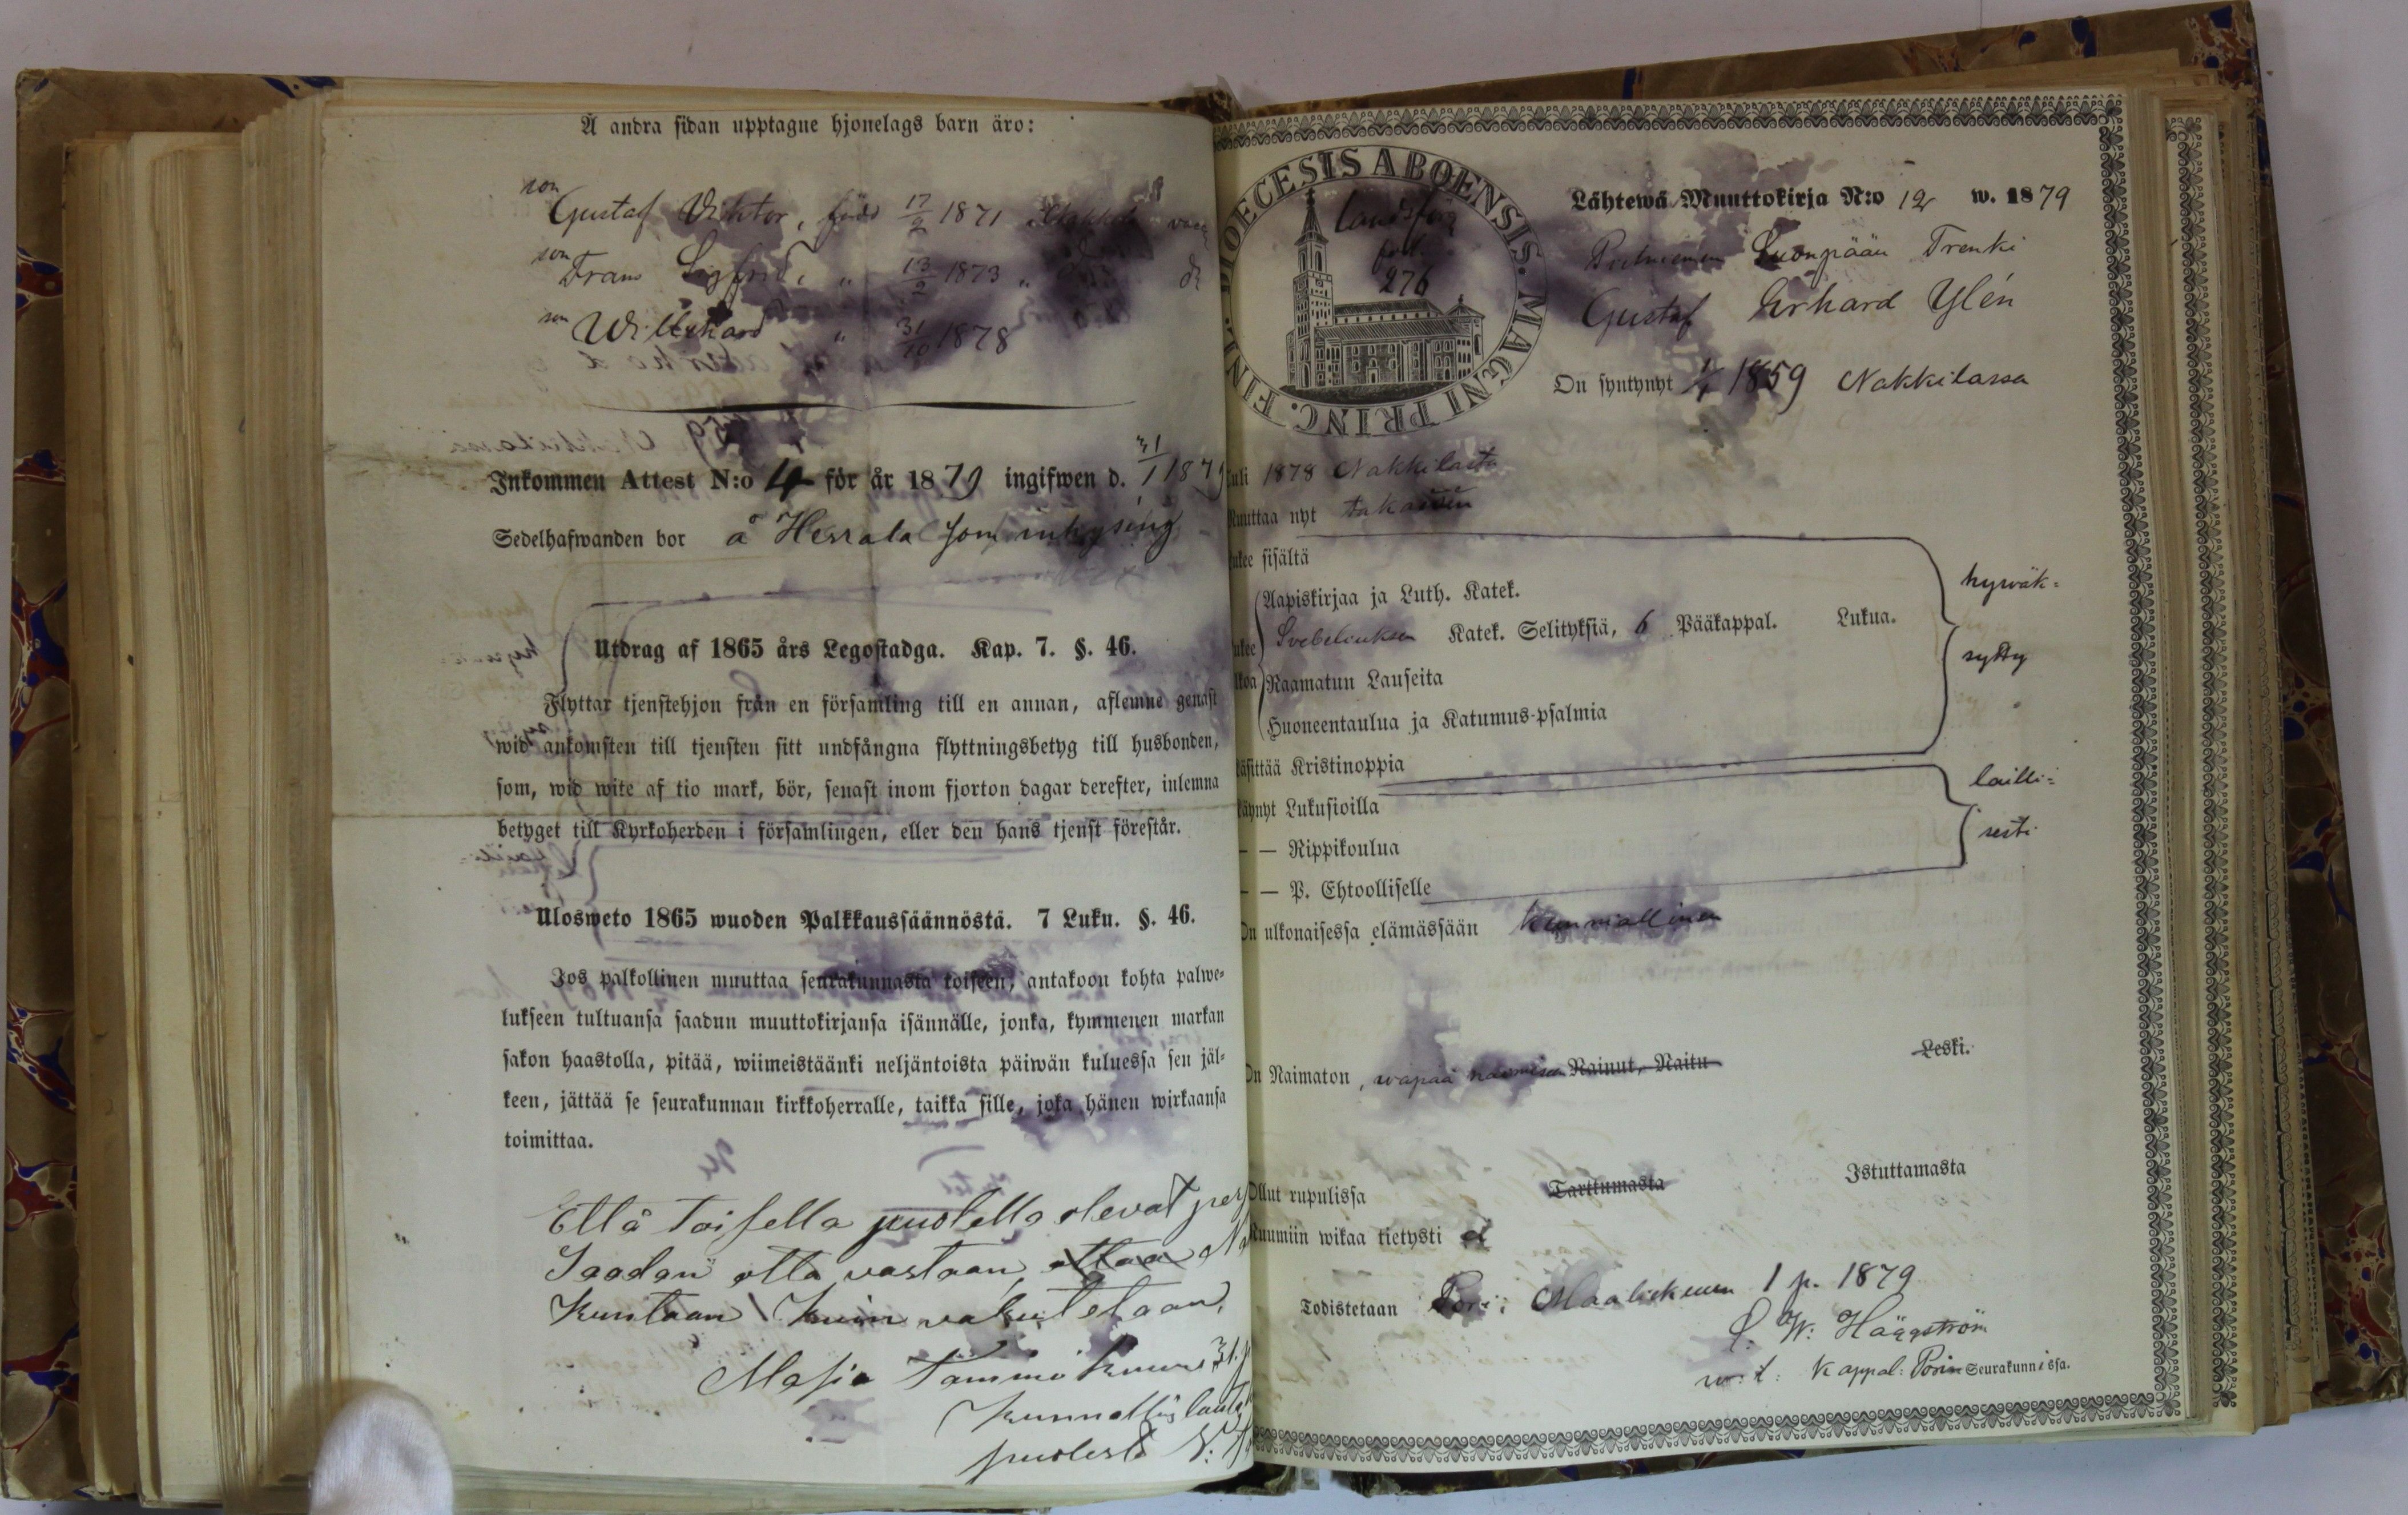 Å andra sidan upptagne hjonelags barn äro:
son Gustaf Viktor, född 17/2 1871
son Frans Sigfrid, " 13/2 1873 "
son Willehard " 31/10 1878
Inkommen Attest N:o 4 för år 1879 ingifwen d. 31/1 1879
Sedelhafwanden bor å Herrala som inhysing
Utdrag af 1865 års Legostadga. Kap. 7. §. 46.
Flyttar tjenstehjon från en församling till en annan, aflemne genast
wid ankomsten till tjensten sitt undfångna flyttningsbetyg till husbonden,
som, wid wite af tio mark, bör, senast inom fjorton dagar derefter, inlemna
betyget till Kyrkoherden i församlingen, eller den hans tjenst förestår.
Ulosweto 1865 wuoden Palkkaussäännöstä. 7 Luku. §. 46.
Jos palkollinen muuttaa seurakunnasta toiseen, antakoon kohta palwe-
lukseen tultuansa saadun muuttokirjansa isännälle, jonka, kymmenen markan
sakon haastolla, pitää, wiimeistäänki neljäntoista päiwän kuluessa sen jäl-
keen, jättää se seurakunnan kirkkoherralle, taikka sille, joka hänen wirkaansa
toimittaa.
Että toisella puolella olevat
Saadan otta vastaan ottaa
Kuntaan kuin vakutetaan,
Tammikuun 31. p
puolesta
DIOECESIS ABOENSIS. MAGNI PRINC. FINL.
Landsförs
fol.
276
Lähtewä Muuttokirja N:o 12 w. 1879
Suonpään Trenki
Gustaf Erhard Ylén
On syntynyt 1859 Nakkilassa
uli 1878 Nakkilasta
Muuttaa nyt takaisin
ukee sisältä
Aapiskirjaa ja Luth. Katek.
hywäk-
ukee Svebeliuksen Katek. Selityksiä, 6 Pääkappal. Lukua.
sytty
lkoa Raamatun Lauseita
Huoneentaulua ja Katumus-psalmia
äsittää Kristinoppia
lailli-
äynyt Lukusioilla
sesti
— — Rippikoulua
— — P. Ehtoolliselle
On ulkonaisessa elämässään kunniallinen
On Naimaton, wapaa naimisen Nainut, Naitu Leski.
Ollut rupulissa Tarttumasta Istuttamasta
Ruumiin wikaa tietysti ei
Todistetaan Pori: Maaliskuun 1 p. 1879
W: Häggström
w. t. Kappal: Porin Seurakunnissa.